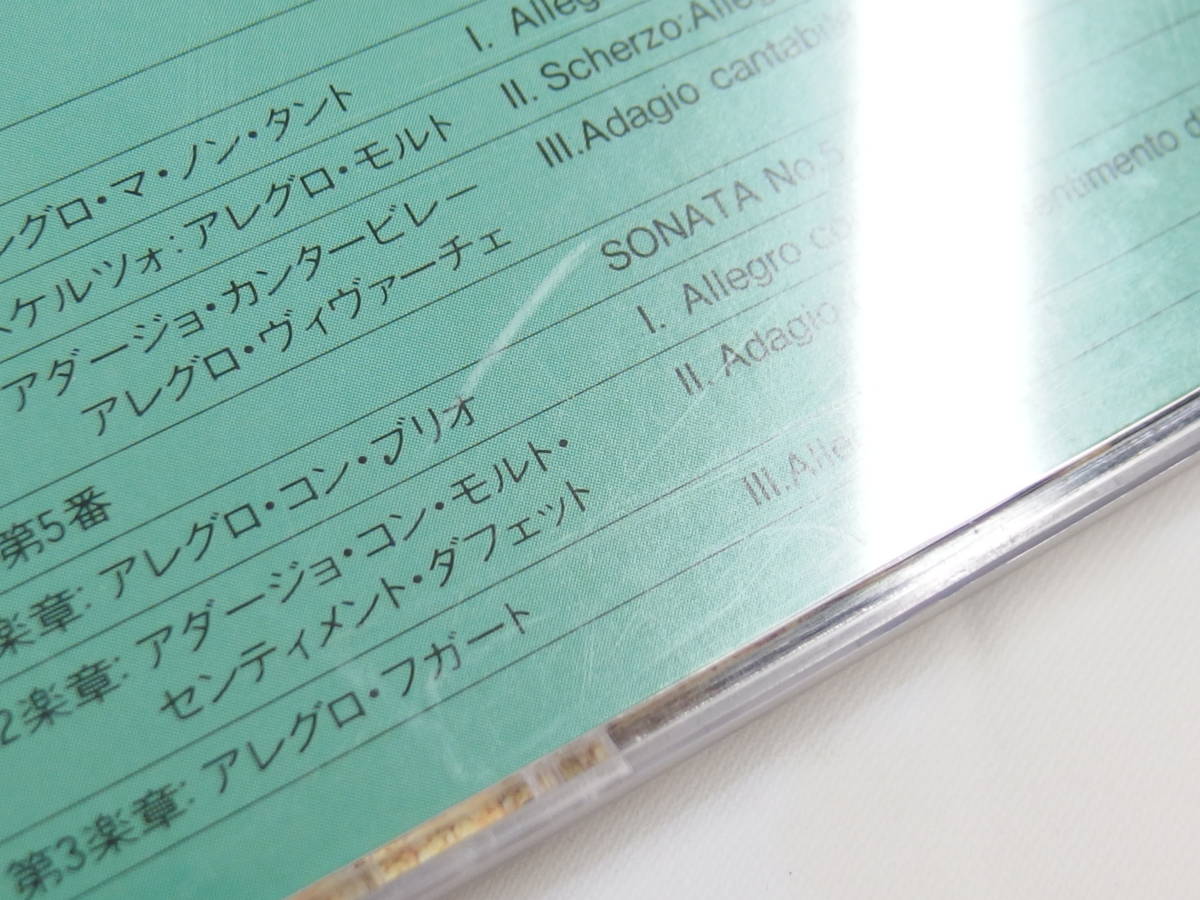 レグロ・マ・ノン・タント
スケルツォ: アレグロ・モルト
アダージョ・カンタービレー
アレグロ・ヴィヴァーチェ
第5番
楽章: アレグロ・コン・ブリオ
2楽章: アダージョ・コン・モルト・
センティメント・ダフェット
第3楽章: アレグロ・フガート
I. Allegro
II. Scherzo: Allegro
III. Adagio cantabile
SONATA No.5
I. Allegro co
II. Adagio entimento d
III. Alle